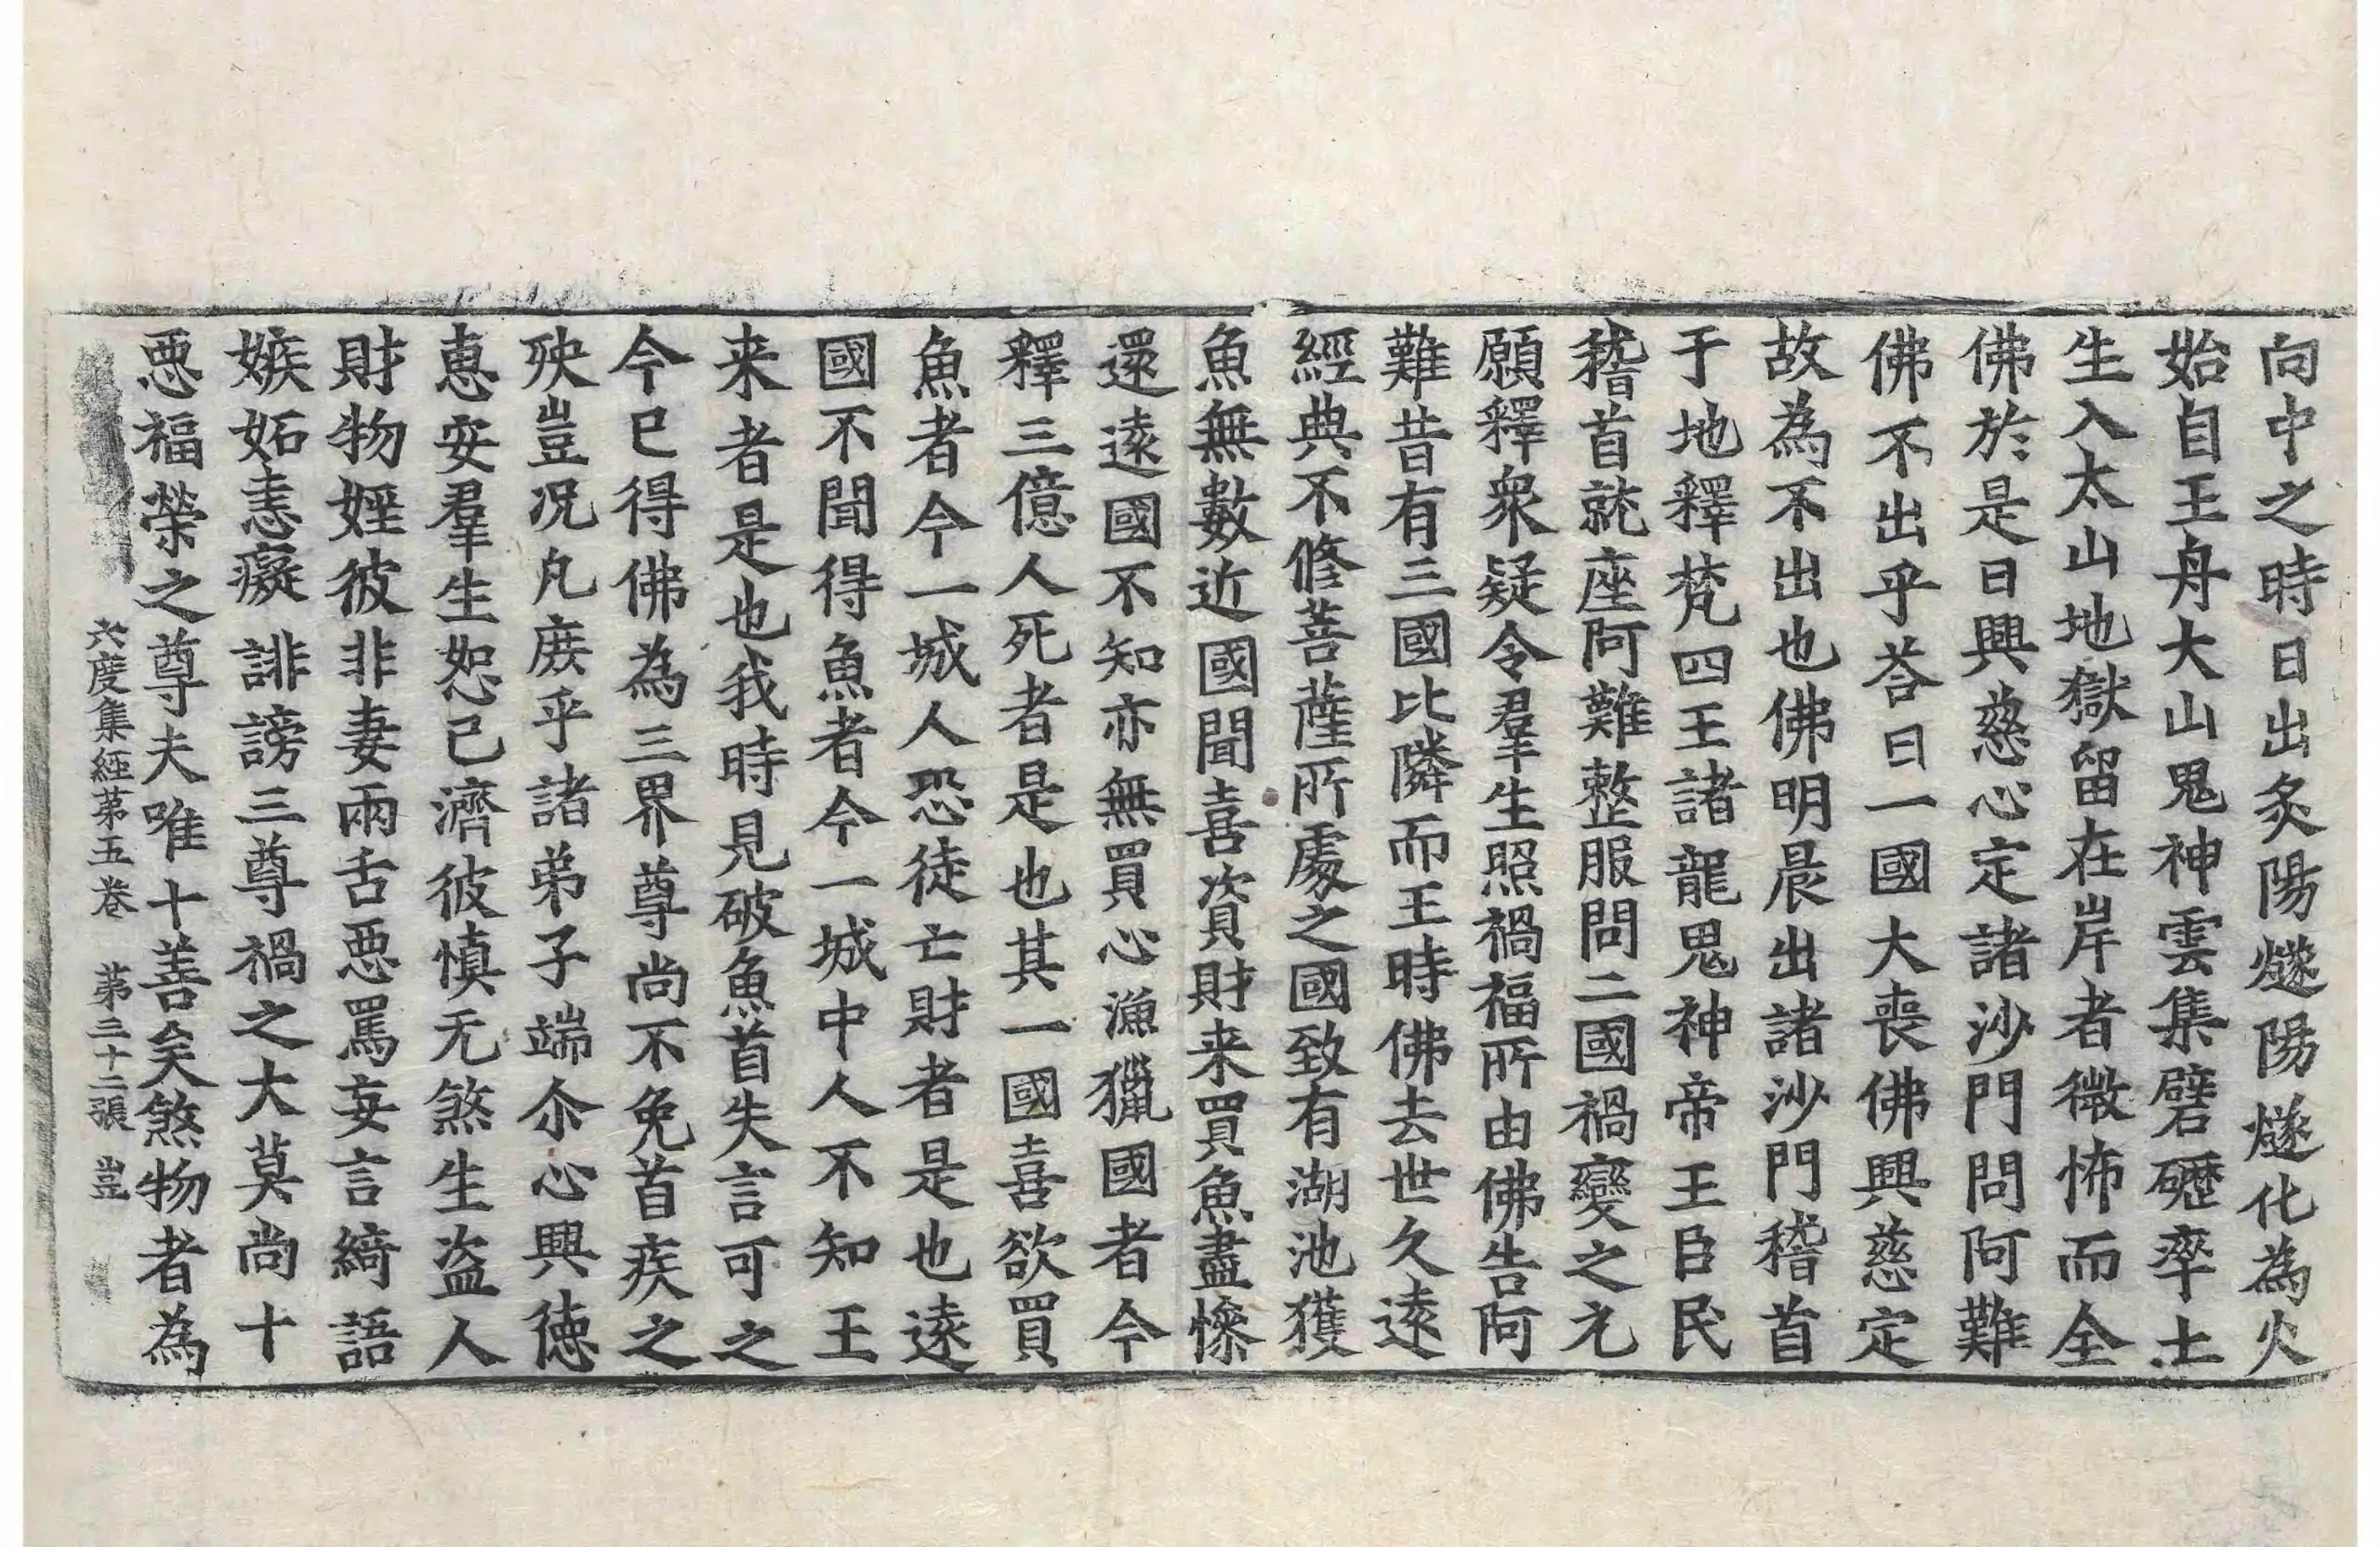 向中之時日出炙陽燧陽燧化為火
始自王舟大山鬼神雲集礕礰率土
生入太山地獄留在岸者微怖而全
佛於是日興慈心定諸沙門問阿難
佛不出乎荅曰一國大喪佛興慈定
故為不出也佛明晨出諸沙門稽首
于地釋梵四王諸龍鬼神帝王臣民
稽首就座阿難整服問二國禍變之元
願釋衆疑令羣生照禍福所由佛告阿
難昔有三國比隣而王時佛去世久遠
經典不修菩薩所處之國致有湖池獲
魚無數近國聞喜資財来買魚盡慘
還遠國不知亦無買心漁獵國者今
釋三億人死者是也其一國喜欲買
魚者今一城人恐徒亡財者是也遠
國不聞得魚者今一城中人不知王
来者是也我時見破魚首失言可之
今已得佛為三界尊尚不免首疾之
殃豈況凡庶乎諸弟子端尒心興徳
恵安羣生恕己濟彼慎无煞生盗人
財物婬彼非妻兩舌惡罵妄言綺語
嫉妬恚癡誹謗三尊禍之大莫尚十
惡福榮之尊夫唯十善矣煞物者為
六度集經苐五卷 苐三十二張 豈